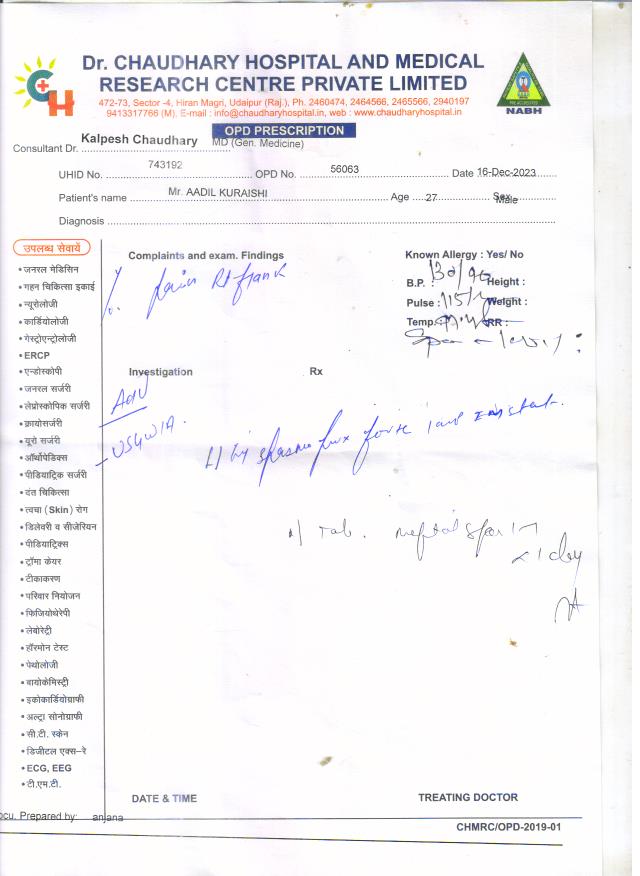 Dr. CHAUDHARY HOSPITAL AND MEDICAL
RESEARCH CENTRE PRIVATE LIMITED
472-73, Sector -4, Hiran Magri, Udaipur (Raj.), Ph. 2460474, 2464566, 2465566, 2940197
9413317766 (M). E-mail : info@chaudharyhospital.in, web : www.chaudharyhospital.in
C H
PRE ACCREDITED
NABH
OPD PRESCRIPTION
Consultant Dr. Kalpesh Chaudhary MD (Gen. Medicine)
UHID No. 743192 OPD No. 56063 Date 16-Dec-2023
Patient's name Mr. AADIL KURAISHI Age 27 Sex Male
Diagnosis
उपलब्ध सेवायें
• जनरल मेडिसिन
• गहन चिकित्सा इकाई
• न्यूरोलोजी
• कार्डियोलोजी
• गेस्ट्रोएन्ट्रोलोजी
• ERCP
• एन्डोस्कोपी
• जनरल सर्जरी
• लेप्रोस्कोपिक सर्जरी
• क्रायोसर्जरी
• यूरो सर्जरी
• ऑर्थोपेडिक्स
• पीडियाट्रिक सर्जरी
• दंत चिकित्सा
• त्वचा (Skin) रोग
• डिलेवरी व सीजेरियन
• पीडियाट्रिक्स
• ट्रॉमा केयर
• टीकाकरण
• परिवार नियोजन
• फिजियोथेरेपी
• लेबोरेट्री
• हॉरमोन टेस्ट
• पेथोलोजी
• बायोकेमिस्ट्री
• इकोकार्डियोग्राफी
• अल्ट्रा सोनोग्राफी
• सी.टी. स्केन
• डिजीटल एक्स-रे
• ECG, EEG
• टी.एम.टी.
Complaints and exam. Findings
pain Rt flank
Known Allergy : Yes/ No
B.P. : 130/90 Height :
Pulse : 115/ Weight :
Temp. RR :
Investigation Rx
Adv
USG W/A.
1) Inj spasmo forte
2) Tab. meftal spas
x 1 day
DATE & TIME TREATING DOCTOR
ocu. Prepared by: anjana
CHMRC/OPD-2019-01